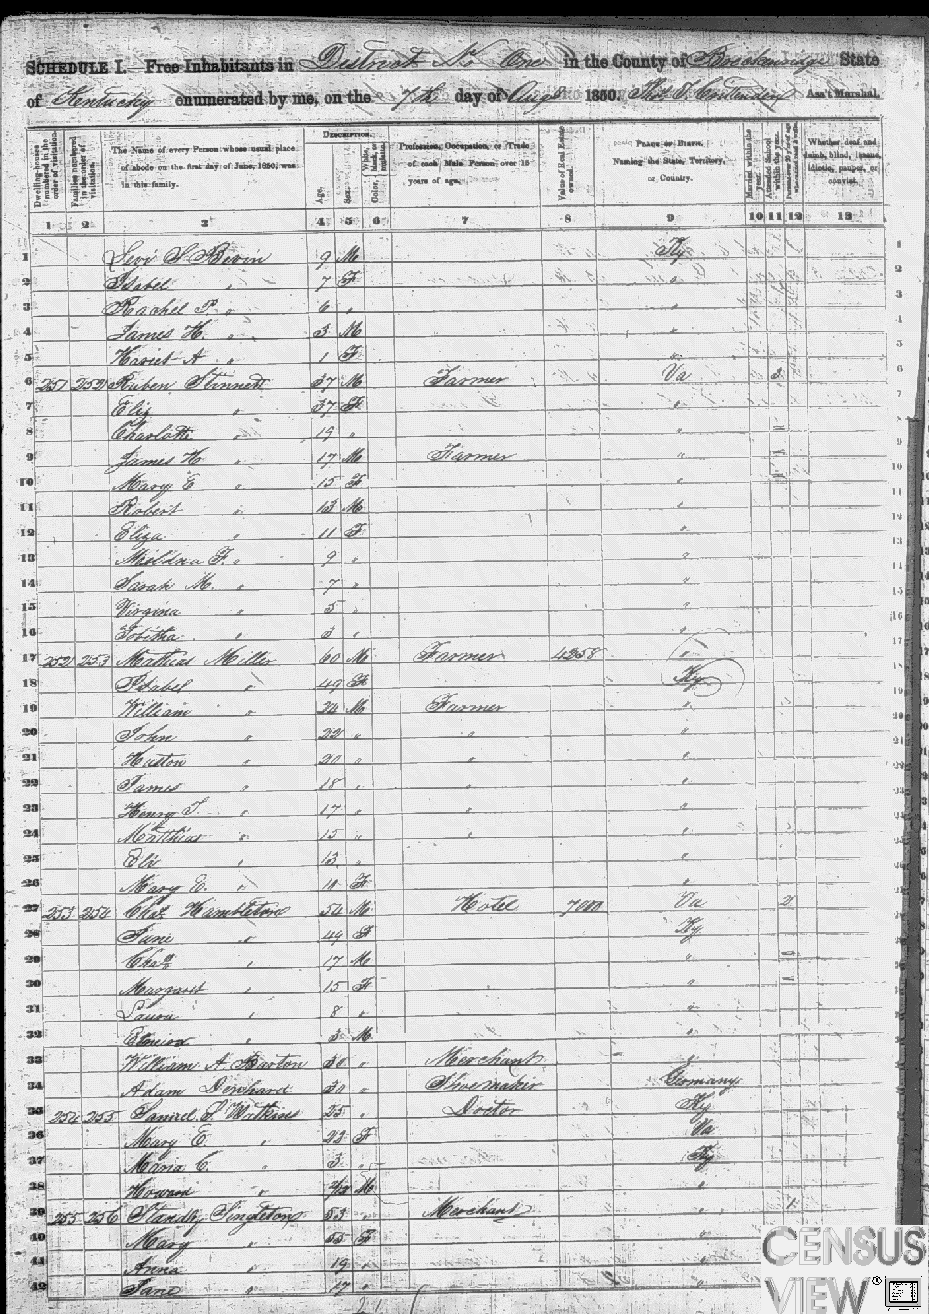 SCHEDULE I.—Free Inhabitants in District No One in the County of Breckenridge State
of Kentucky enumerated by me, on the 7th day of Augt 1850. Ass't Marshal.
DESCRIPTION.
Dwelling-houses numbered in the order of visitation.
Families numbered in the order of visitation.
The Name of every Person whose usual place of abode on the first day of June, 1850, was in this family.
Age.
Sex.
Color, White, black, or mulatto.
Profession, Occupation, or Trade of each Male Person over 15 years of age.
Value of Real Estate owned.
PLACE OF BIRTH. Naming the State, Territory, or Country.
Married within the year.
Attended School within the year.
Whether deaf and dumb, blind, insane, idiotic, pauper, or convict.
1 2 3 4 5 6 7 8 9 10 11 12 13
1 Levi S Bevin 9 M Ky 1
2 Isabel " 7 F " 2
3 Rachel P. " 6 " " 3
4 James H. " 3 M " 4
5 Hariet A " 1 F " 5
6 251 252 Ruben Stinnett 37 M Farmer Va 6
7 Eliz " 37 F " 7
8 Charlotte " 19 " " 8
9 James H " 17 M Farmer " 9
10 Mary E " 15 F " 10
11 Robert " 13 M " 11
12 Eliza " 11 F " 12
13 Meldna F. " 9 " " 13
14 Sarah M. " 7 " " 14
15 Virginia " 5 " " 15
16 Tobitha " 3 " " 16
17 252 253 Mathias Miller 60 M Farmer 4258 " 17
18 Isabel " 49 F Ky 18
19 William " 24 M Farmer " 19
20 John " 22 " " " 20
21 Huston " 20 " " " 21
22 James " 18 " " " 22
23 Henry T. " 17 " " " 23
24 Matthias " 15 " " " 24
25 Eli " 13 " " 25
26 Mary E. " 10 F " 26
27 253 254 Chas Hambleton 54 M Hotel 7000 Va 2
28 Jane " 49 F Ky
29 Chas " 17 M "
30 Margaret " 15 F "
31 Laura " 8 " "
32 3 M "
33 William A Barton 30 " Merchant "
34 Adam 30 " Shoemaker Germany
35 254 255 Samuel S Watkins 25 " Doctor Ky
36 Mary E. " 22 F Va
37 Maria C. " 3 " Ky
38 Howard " M "
39 255 256 Standly Singleton 53 " Merchant " 1
40 Mary " 55 F "
41 Anna " 19 " "
42 Jane " 17 " "
CENSUS
VIEW®